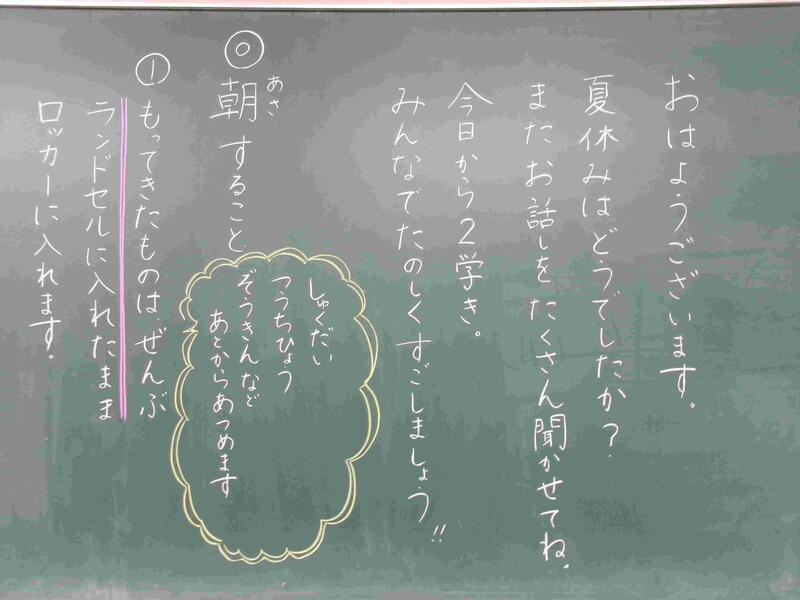 おはようございます。
夏休みはどうでしたか？
またお話しをたくさん聞かせてね。
今日から２学き。
みんなでたのしくすごしましょう!!
◎朝すること
あさ
しゅくだい
つうちひょう
ぞうきんなど
あとからあつめます
①もってきたものは、ぜんぶ
ランドセルに入れたまま
ロッカーに入れます。